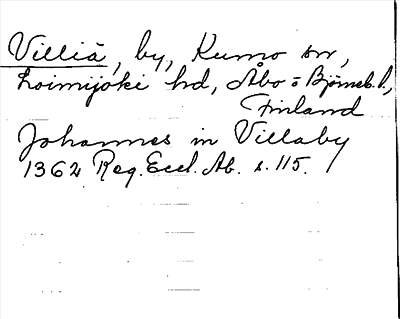 Villiä, by, Kumo sn,
Loimijoki hd, Åbo o Björneb. l.,
Finland
Johannes in Villaby
1362 Reg. Eccl. Ab. s. 115.